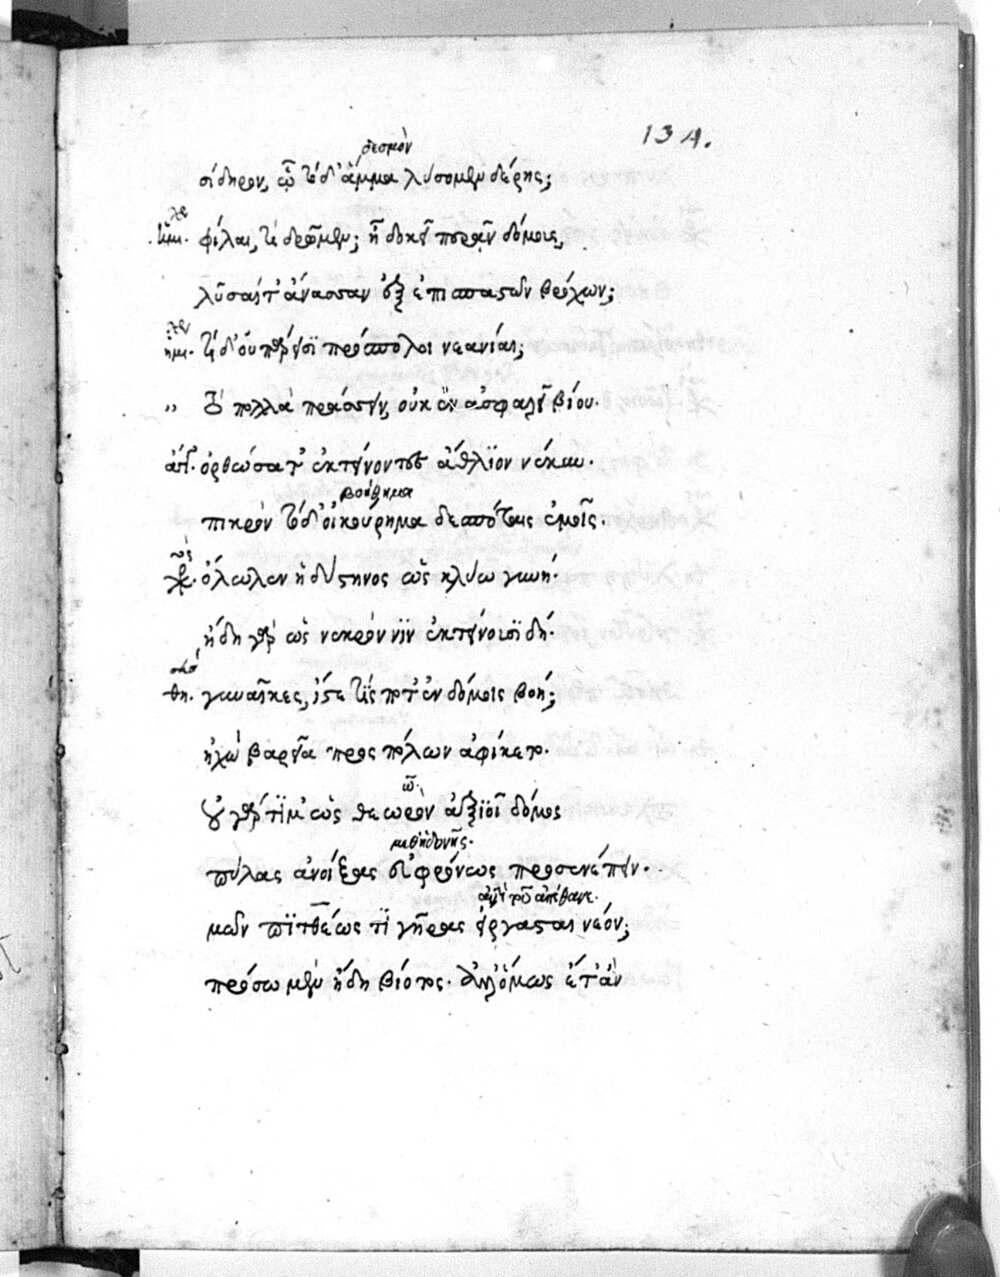 134.
δεσμὸν
σίδηρον, ᾧ τόδ' ἅμμα λύσομεν δέρης;
ἡμι. φίλαι, τί δρῶμεν; ἢ δοκεῖ περᾶν δόμους,
λῦσαί τ' ἄνασσαν ἐξ ἐπισπαστῶν βρόχων;
ἡμι. τί δ' οὐ πάρεισι πρόσπολοι νεανίαι;
" τὸ πολλὰ πράσσειν, οὐκ ἐν ἀσφαλεῖ βίου.
ὀρθώσατ' ἐκτείνοντες ἄθλιον νέκυν.
βοήθημα
πικρὸν τόδ' οἰκούρημα δεσπόταις ἐμοῖς.
χο. ὄλωλεν ἡ δύστηνος ὡς κλύω γυνή.
ἤδη γὰρ ὡς νεκρόν νιν ἐκτείνουσι δή.
θη. γυναῖκες, ἴστε τίς ποτ' ἐν δόμοις βοή;
ἠχὼ βαρεῖα πρὸς πόλων ἀφίκετο.
οὐ γάρ τί μ' ὡς θεωρὸν ἀξιοῖ δόμος
μεθ' ἡδονῆς.
πύλας ἀνοίξας εὐφρόνως προσενέπειν.
ἀντὶ τοῦ ἀπέθανε.
μῶν πιτθέως τι γῆρας εἴργασται νέον;
πρόσω μὲν ἤδη βίοτος. ἀλλ' ὅμως ἔτ' ἂν